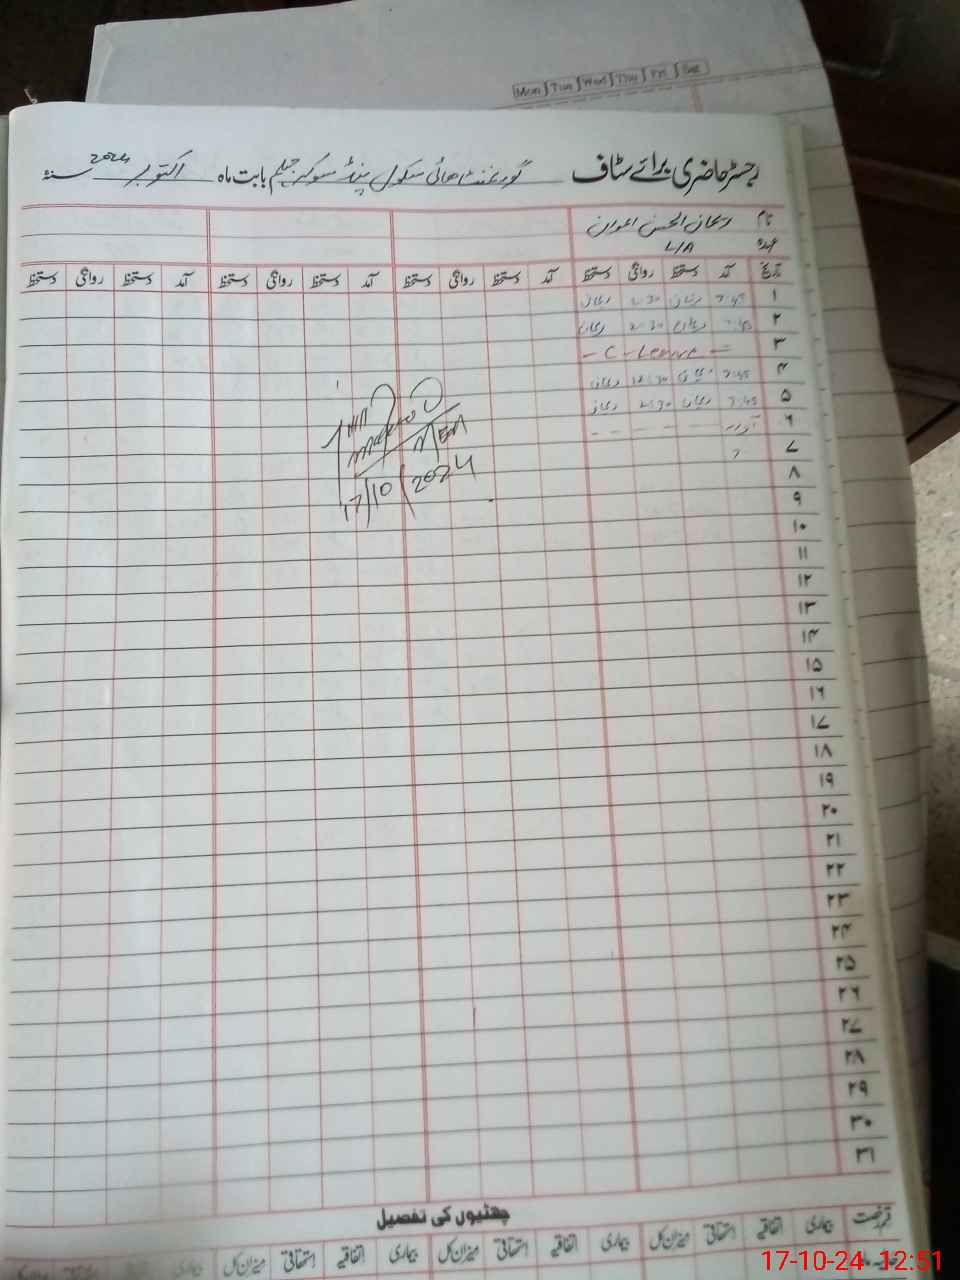 Mon Tue Wed Thu Fri Sat
رجسٹر حاضری برائے سٹاف گورنمنٹ ھائی سکول پنڈ سوکہ جہلم بابت ماہ اکتوبر 2024 سنہ
نام ریحان الحسن اعوان
عہدہ L/A
تاریخ آمد دستخط روانگی دستخط آمد دستخط روانگی دستخط آمد دستخط روانگی دستخط آمد دستخط روانگی دستخط
۱ 7:45 ریحان 2:30 ریحان
۲ 7:45 ریحان 2:30 ریحان
۳ - C - Leave -
۴ 7:45 ریحان 12:30 ریحان
۵ 7:45 ریحان 2:30 ریحان
۶
۷
۸
۹
۱۰
۱۱
۱۲
۱۳
۱۴
۱۵
۱۶
۱۷
۱۸
۱۹
۲۰
۲۱
۲۲
۲۳
۲۴
۲۵
۲۶
۲۷
۲۸
۲۹
۳۰
۳۱
MEA
17/10/2024
چھٹیوں کی تفصیل
قسم رخصت بیماری اتفاقیہ استحقاقی میزان کل بیماری اتفاقیہ استحقاقی میزان کل بیماری اتفاقیہ استحقاقی میزان کل
17-10-24 12:51